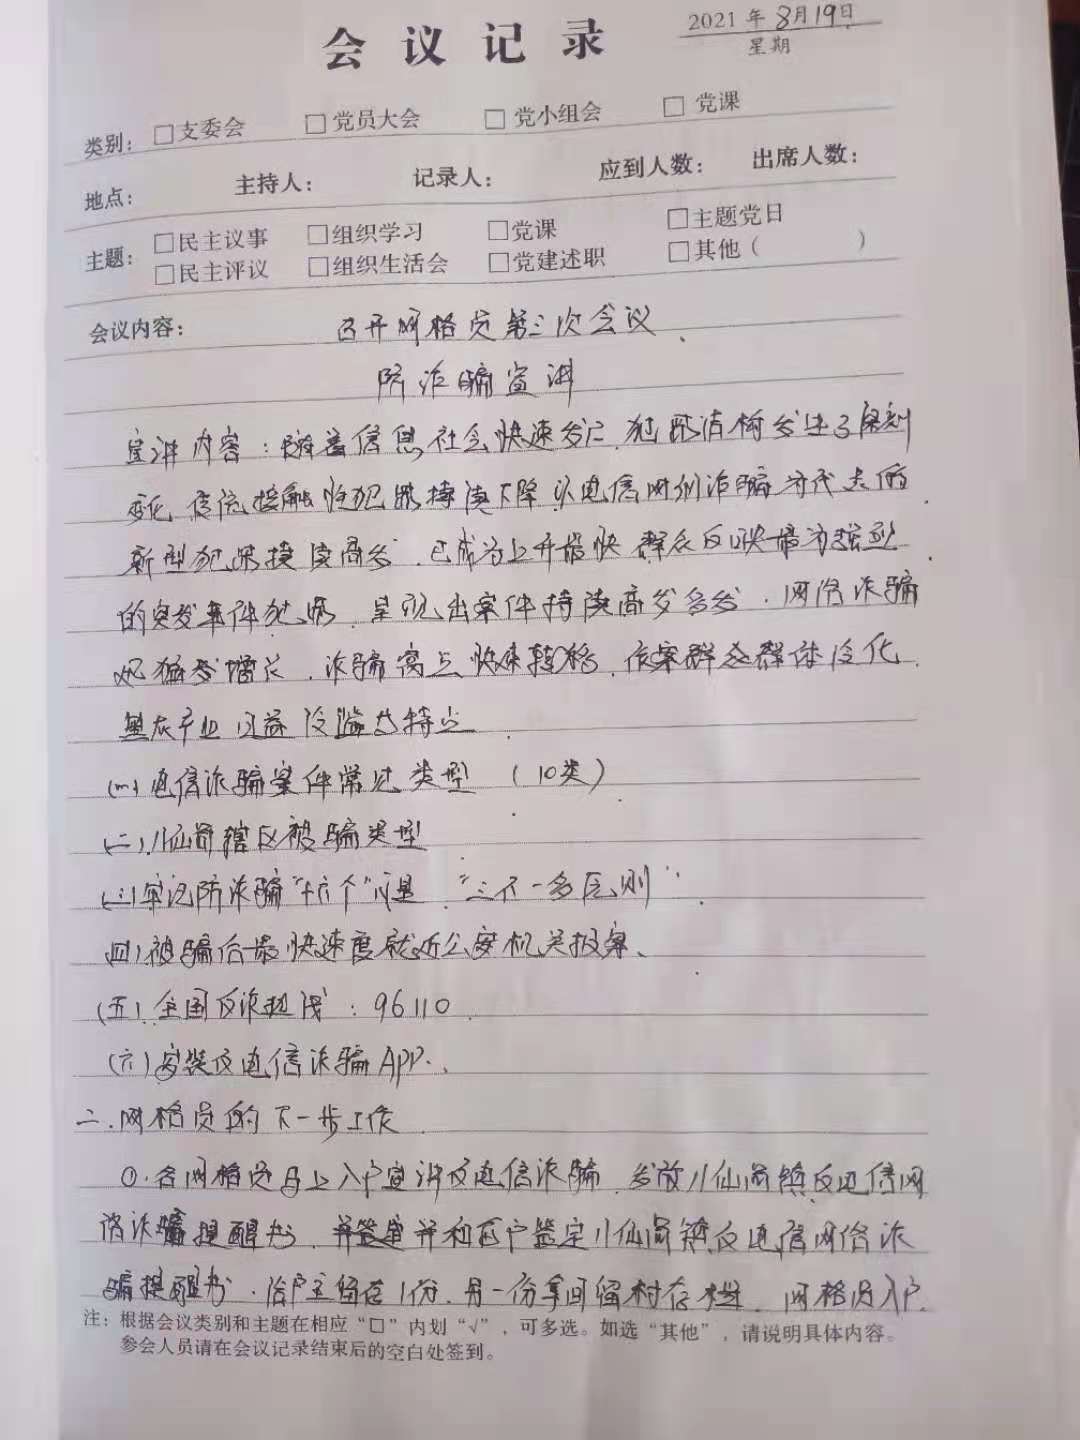 会议记录
2021年8月19日
星期
类别: □支委会 □党员大会 □党小组会 □党课
地点: 主持人: 记录人: 应到人数: 出席人数:
主题: □民主议事 □组织学习 □党课 □主题党日
□民主评议 □组织生活会 □党建述职 □其他( )
会议内容: 召开网格员第三次会议
防诈骗宣讲
宣讲内容:随着信息社会快速发展,犯罪结构发生了深刻
变化,传统接触性犯罪持续下降,以电信网络诈骗为代表的
新型犯罪持续高发,已成为上升最快,群众反映最为强烈
的突发事件犯罪,呈现出案件持续高发多发,网络诈骗
迅猛增长,诈骗窝点快速转移,作案群体
黑灰产业日益泛滥等特点
(一)电信诈骗案件常见类型(10类)
(二)八仙筒辖区被骗类型
(三)牢记防诈骗"十六个"凡是,"三不一多原则"
(四)被骗后最快速度就近公安机关报案、
(五)全国反诈热线:96110
(六)安装反电信诈骗APP.
二.网格员的下一步工作
①.各网格员马上入户宣讲反电信诈骗,发放八仙筒镇反电信网
络诈骗提醒书,并和农户签定八仙筒镇反电信网络诈
骗提醒书,给户主留存1份,另一份拿回留村存档,网格员入户
注: 根据会议类别和主题在相应"□"内划"√",可多选。如选"其他",请说明具体内容。
参会人员请在会议记录结束后的空白处签到。